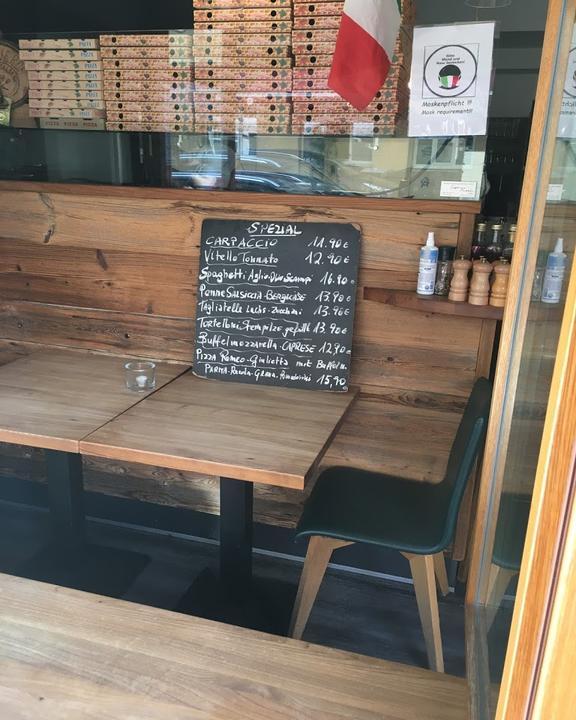 Bitte
Mund und
Nase bedecken!
Maskenpflicht !!
Mask requirement!!
SPEZIAL
CARPACCIO 11.90€
Vitello Tonnato 12.90€
Spaghetti Aglio-Olio Scampi 16.90€
Penne Salsiccia-Bergkäse 13.90€
Tagliatelle Lachs-Zucchini 13.90€
Tortelloni Steinpilze gefüllt 13.90€
Buffelmozzarella-CAPRESE 12,90€
Pizza Romeo-Giulietta mit Buffelm.
PARMA-Rucola-Grana-Pomodorini 15,90